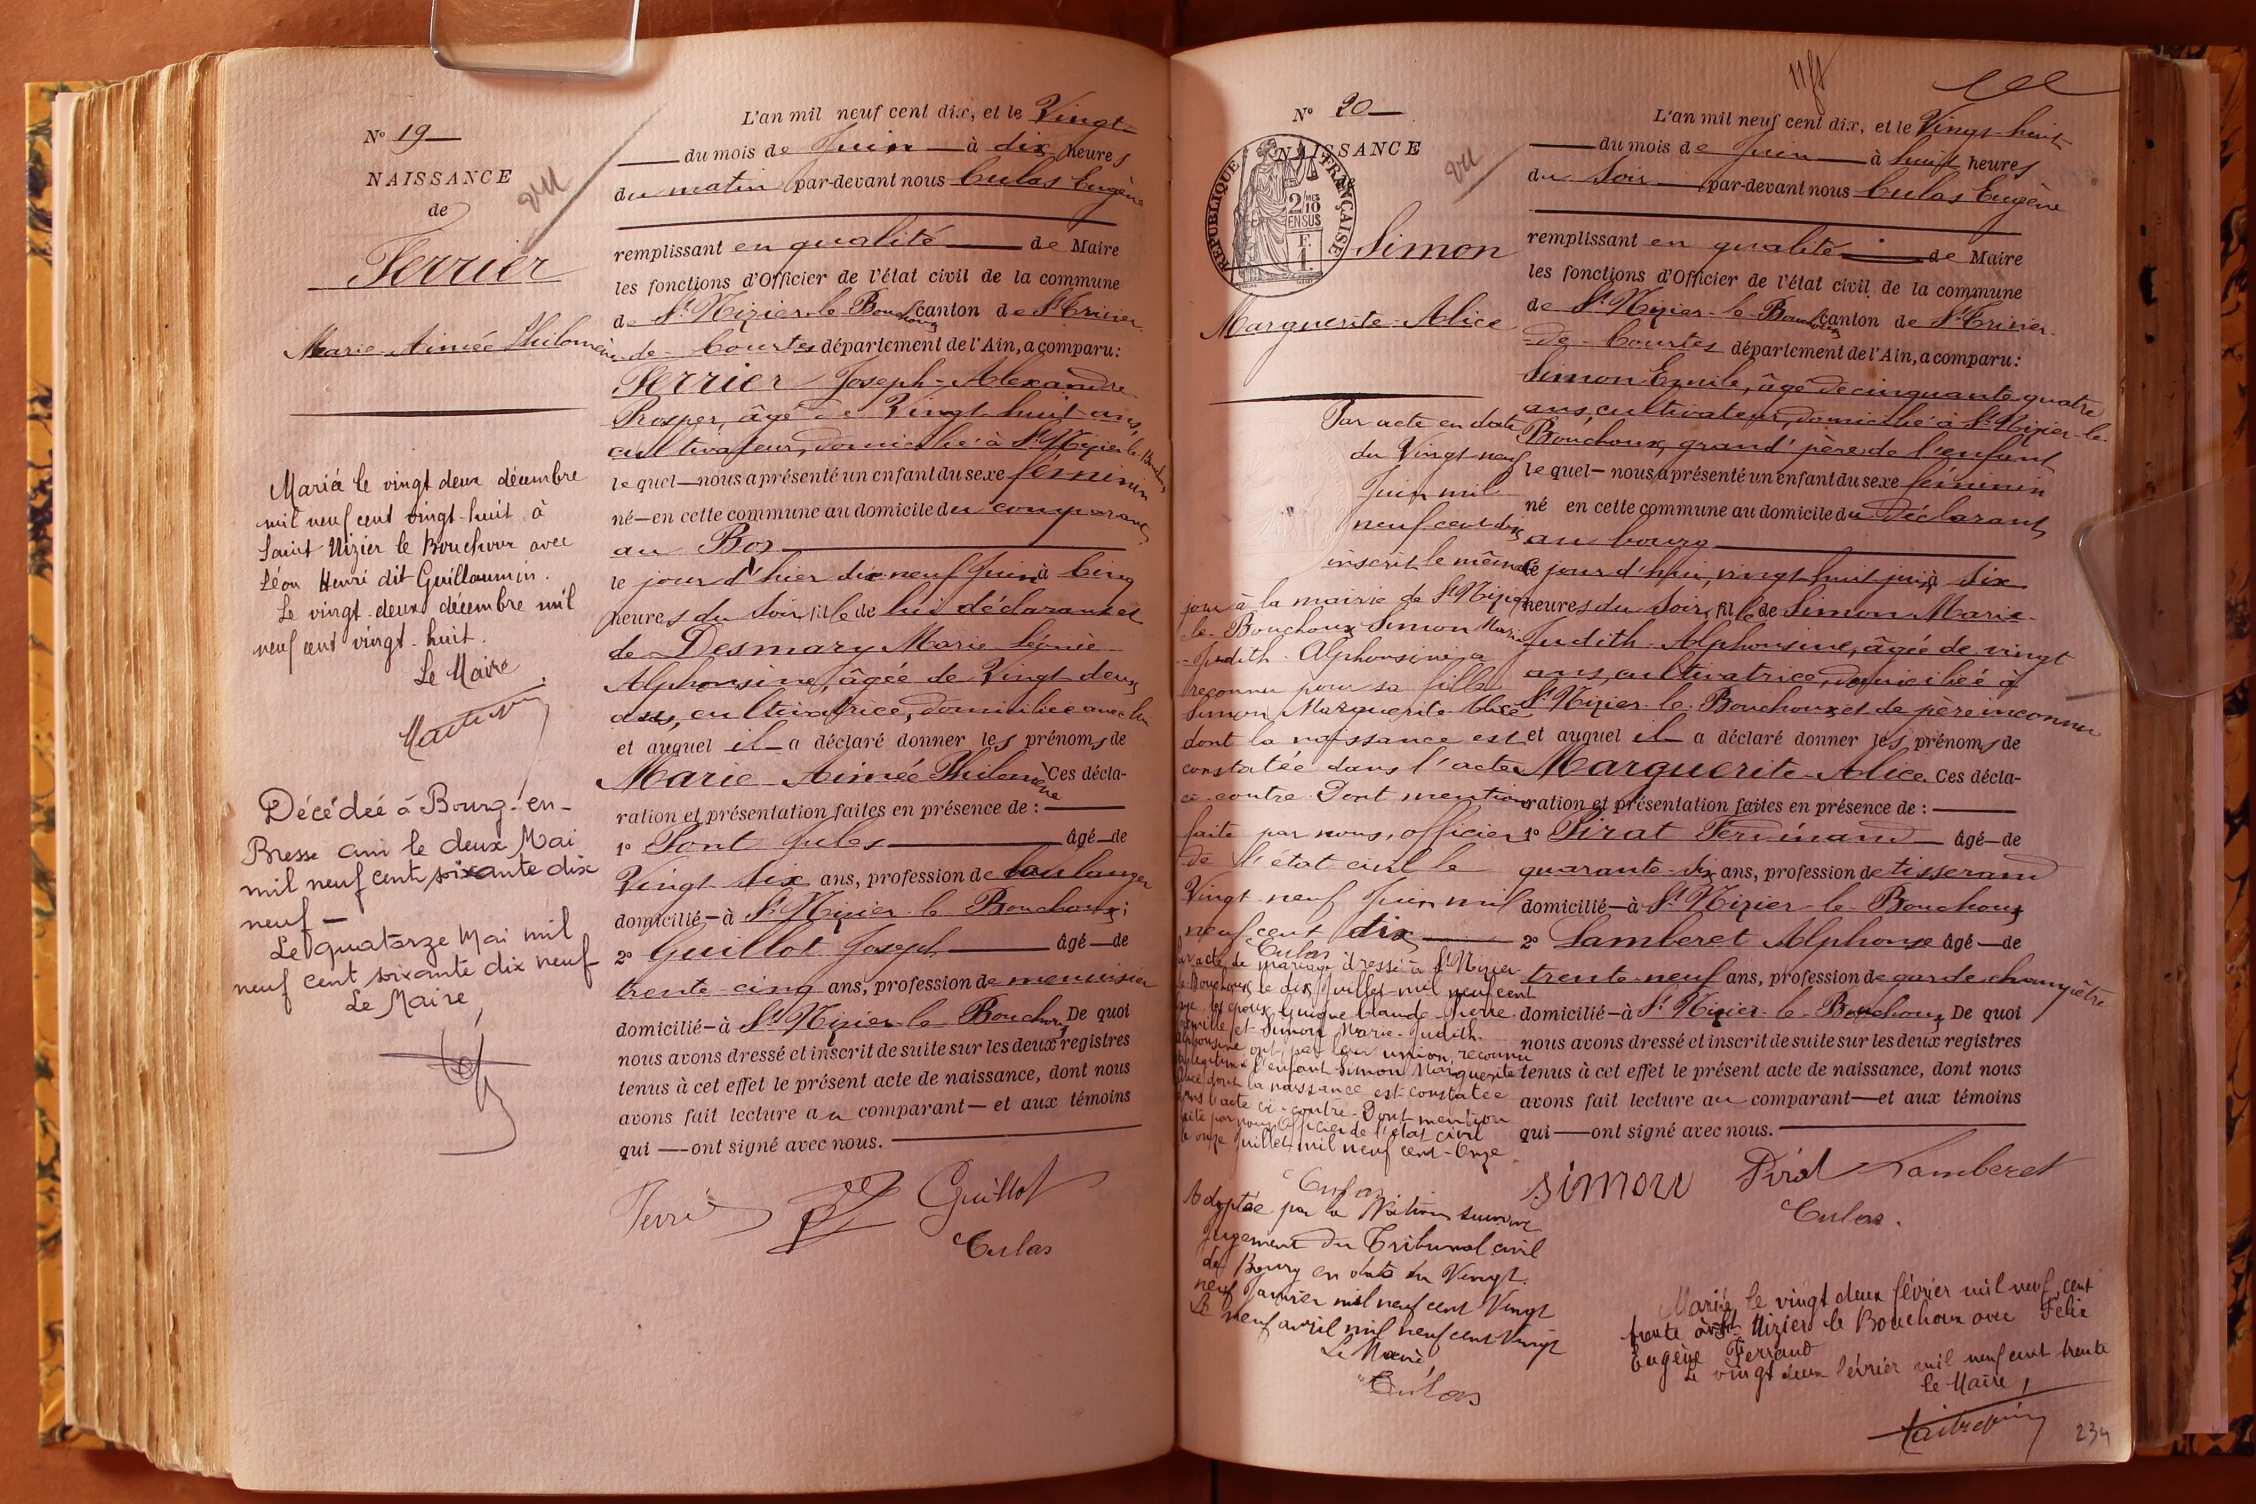 N° 19
NAISSANCE
de
Ferrier
Marie-Aimée Philomène
vu
Mariée le vingt deux décembre
mil neuf cent vingt-huit à
Saint Nizier le Bouchoux avec
Léon Henri dit Guillaumin.
Le vingt-deux décembre mil
neuf cent vingt-huit.
Le Maire
Décédée à Bourg-en-
Bresse Ain le deux Mai
mil neuf cent soixante dix
neuf —
Le quatorze Mai mil
neuf cent soixante dix neuf
Le Maire,
L'an mil neuf cent dix, et le Vingt
du mois de Juin à dix heures
du matin par-devant nous Culas Eugène
remplissant en qualité de Maire
les fonctions d'Officier de l'état civil de la commune
de St Nizier-le-Bouchoux canton de St Trivier
de-Courtes département de l'Ain, a comparu:
Ferrier Joseph-Alexandre
Prosper, âgé de Vingt huit ans,
cultivateur, domicilié à St Nizier-le-Bouchoux
le quel—nous a présenté un enfant du sexe féminin
né—en cette commune au domicile du comparant
au Boz
le jour d'hier dix neuf Juin à Cinq
heures du Soir fille de lui déclarant et
de Desmary Marie-Léonie-
Alphonsine, âgée de Vingt deux
ans, cultivatrice, domiciliée avec lui
et auquel il a déclaré donner les prénoms de
Marie-Aimée Philomène Ces décla-
ration et présentation faites en présence de :
1° Pont Jules âgé—de
Vingt six ans, profession de boulanger
domicilié—à St Nizier-le-Bouchoux;
2° Guillot Joseph âgé—de
trente-cinq ans, profession de menuisier
domicilié—à St Nizier-le-Bouchoux De quoi
nous avons dressé et inscrit de suite sur les deux registres
tenus à cet effet le présent acte de naissance, dont nous
avons fait lecture au comparant—et aux témoins
qui —ont signé avec nous.
Ferrier Guillot
Culas
N° 20
NAISSANCE
RÉPUBLIQUE FRANÇAISE
2/10
EN SUS
F.
1.
vu
Simon
Marguerite-Alice
Par acte en date
du Vingt neuf
Juin mil
neuf cent dix
inscrit le même
jour à la mairie de St Nizier
le-Bouchoux Simon Marie
-Judith-Alphonsine, a
reconnu pour sa fille
Simon Marguerite Alice
dont la naissance est
constatée dans l'acte
ci-contre. Dont mention
faite par nous, officier
de l'état civil le
Vingt neuf Juin mil
neuf cent dix
Culas
Par acte de mariage dressé à St Nizier
le Bouchoux le dix Juillet mil neuf cent
onze, les époux Guigue Claude-Pierre
et Simon Marie-Judith-
Alphonsine ont, par leur union, reconnu
et légitimé l'enfant Simon Marguerite
Alice dont la naissance est constatée
dans l'acte ci-contre. Dont mention
faite par nous Officier de l'état civil
le onze Juillet mil neuf cent-Onze
Culas
Adoptée par la Nation suivant
jugement du Tribunal civil
de Bourg en date du Vingt
neuf Janvier mil neuf cent Vingt
Le neuf avril mil neuf cent Vingt
Le Maire,
Culas
L'an mil neuf cent dix, et le Vingt-huit
du mois de Juin à huit heures
du Soir par-devant nous Culas Eugène
remplissant en qualité de Maire
les fonctions d'Officier de l'état civil de la commune
de St Nizier-le-Bouchoux canton de St Trivier-
de-Courtes département de l'Ain, a comparu:
Simon Emile, âgé de cinquante quatre
ans, cultivateur, domicilié à St Nizier-le-
Bouchoux, grand'père de l'enfant
le quel—nous a présenté un enfant du sexe féminin
né en cette commune au domicile du déclarant
au bourg
le jour d'hui, vingt huit juin à dix
heures du Soir, fille de Simon Marie-
Judith-Alphonsine, âgée de vingt
ans, cultivatrice, domiciliée à
St Nizier-le-Bouchoux et de père inconnu
et auquel il a déclaré donner les prénoms de
Marguerite-Alice Ces décla-
ration et présentation faites en présence de :
1° Pirat Ferdinand âgé—de
quarante-six ans, profession de tisserand
domicilié—à St Nizier-le-Bouchoux
2° Lamberet Alphonse âgé—de
trente-neuf ans, profession de garde-champêtre
domicilié—à St Nizier-le-Bouchoux De quoi
nous avons dressé et inscrit de suite sur les deux registres
tenus à cet effet le présent acte de naissance, dont nous
avons fait lecture au comparant—et aux témoins
qui—ont signé avec nous.
Simon Pirat Lamberet
Culas.
Mariée le vingt deux février mil neuf cent
trente à St Nizier le Bouchoux avec Félix
Eugène Ferrand
Le vingt deux février mil neuf cent trente
Le Maire,
234